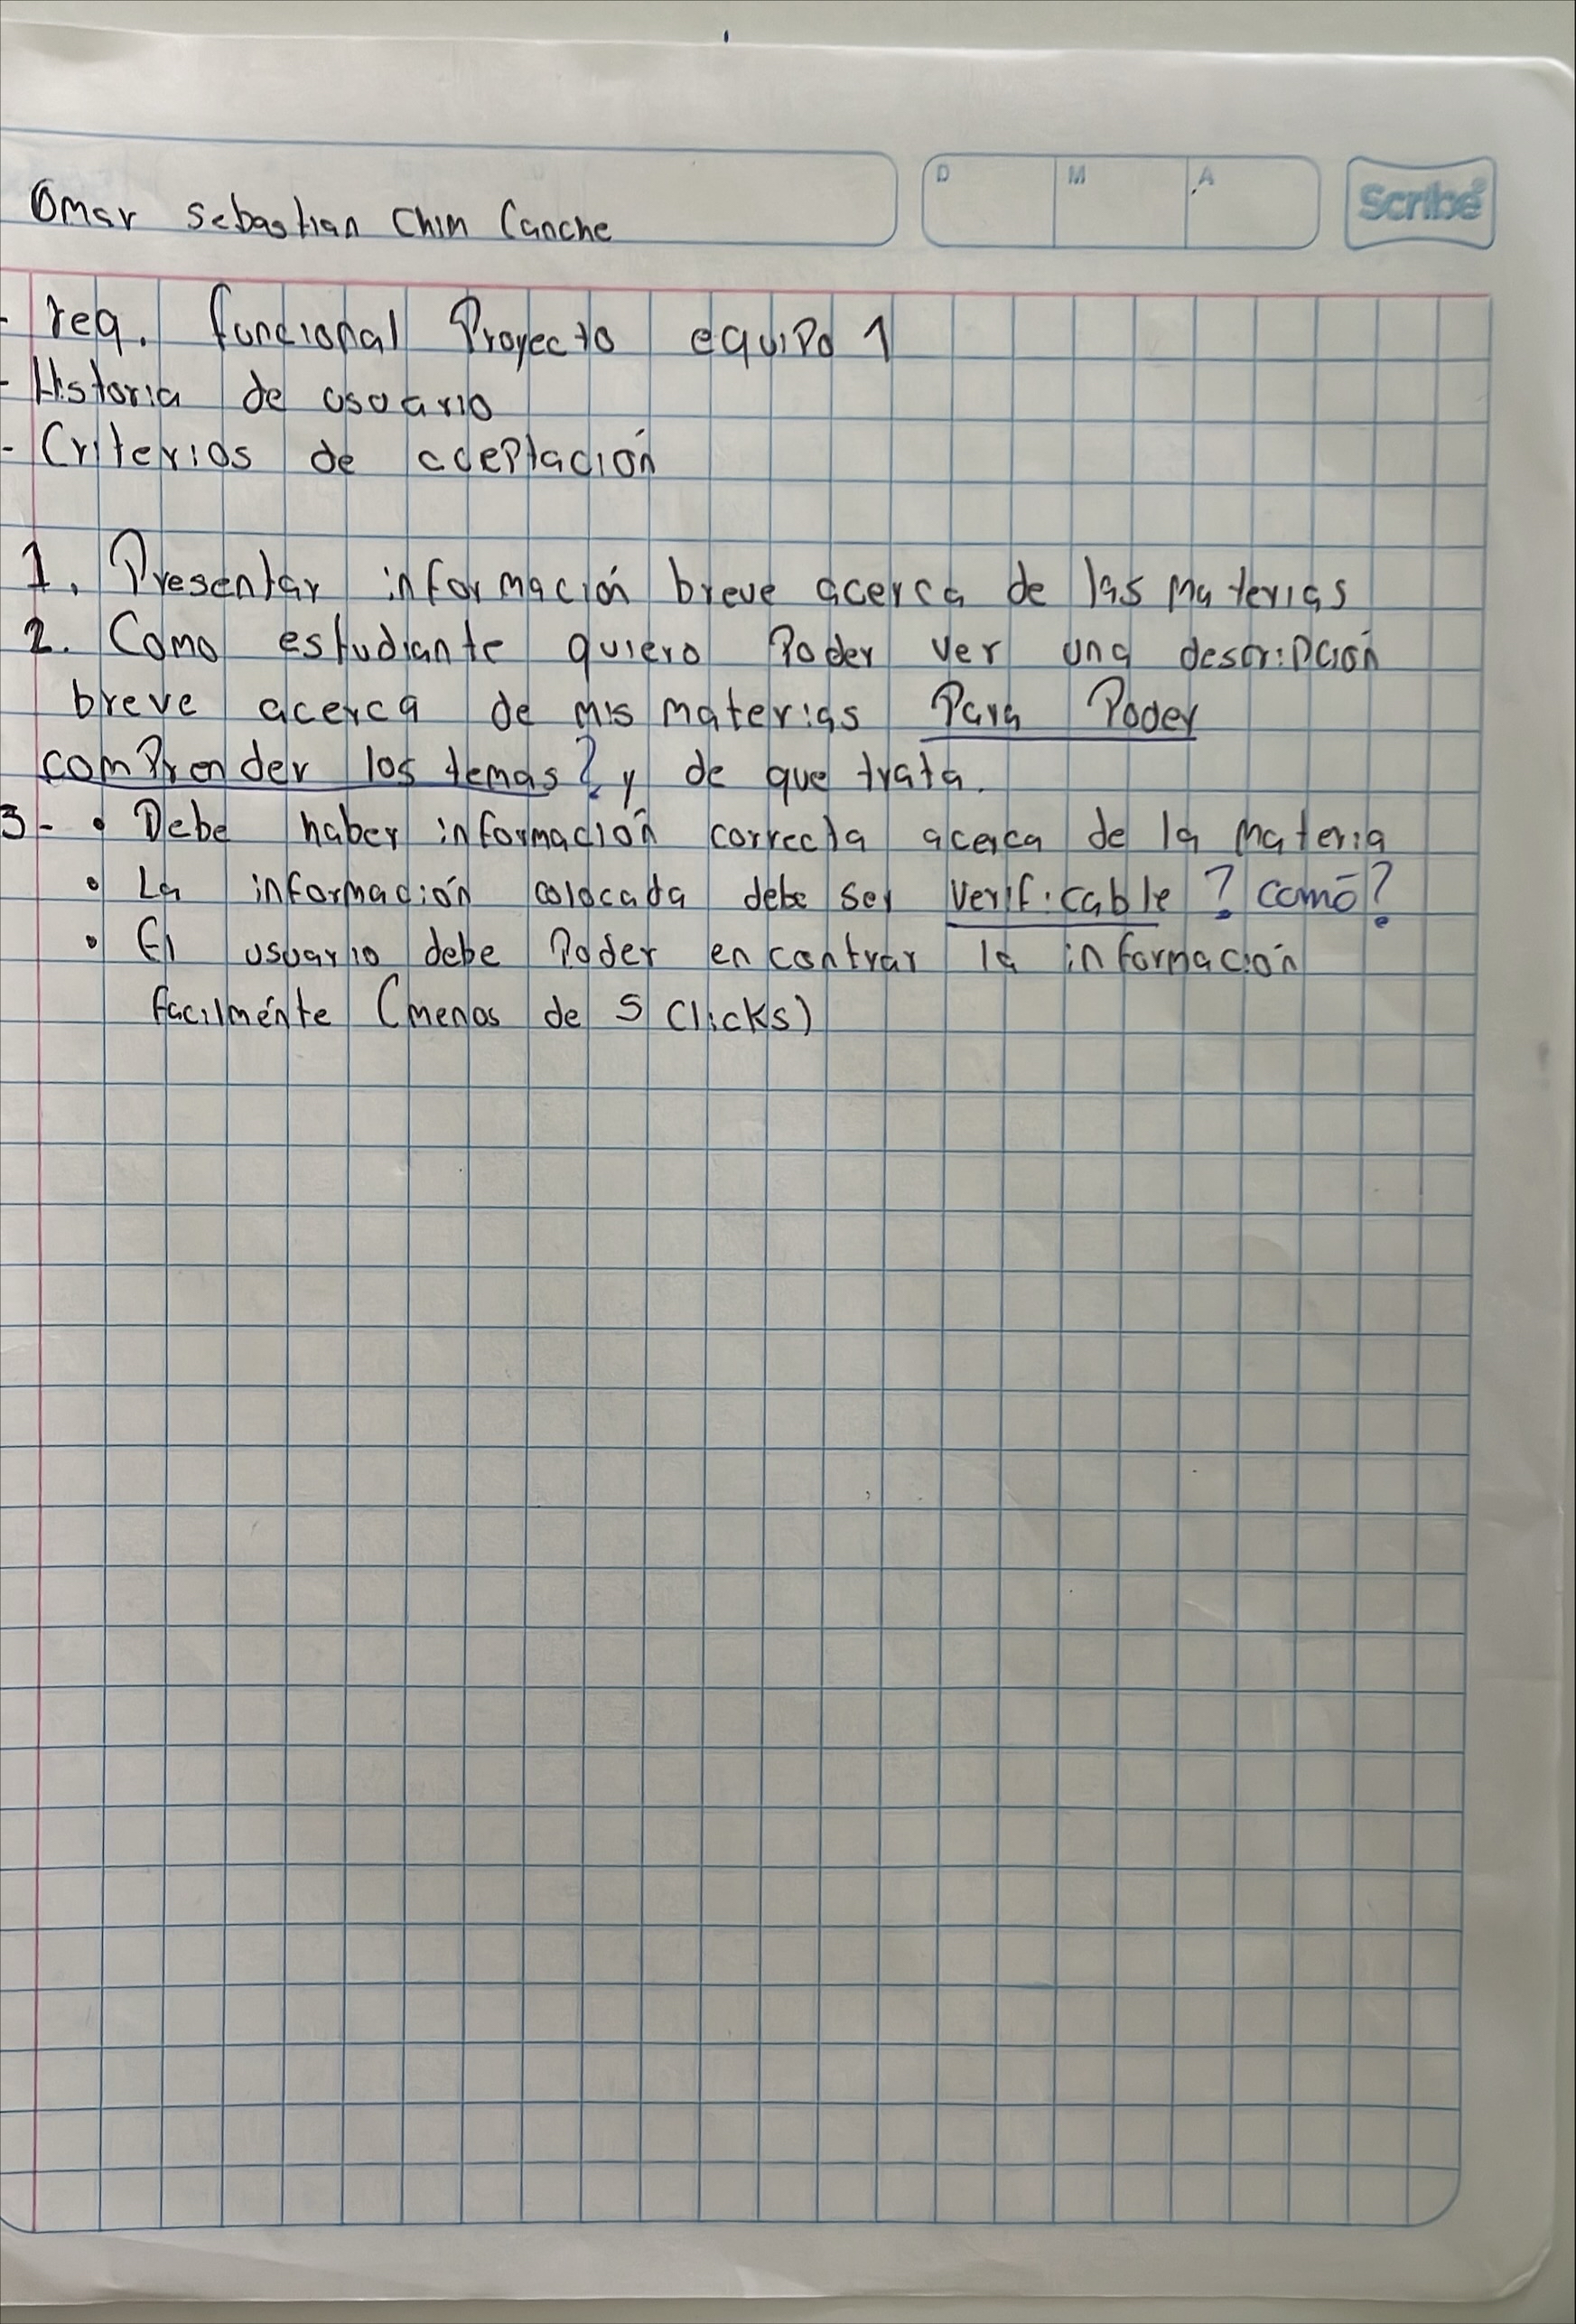 D M A
Scribe
Omar Sebastian Chim Canche
- req. funcional Proyecto equipo 1
- Historia de usuario
- Criterios de aceptación
1. Presentar información breve acerca de las materias
2. Como estudiante quiero Poder ver una descripción
breve acerca de mis materias Para Poder
comprender los temas? y de que trata.
3- • Debe haber información correcta acerca de la materia
• La información colocada debe ser verificable ? como?
• El usuario debe Poder encontrar la información
facilménte (menos de 5 clicks)